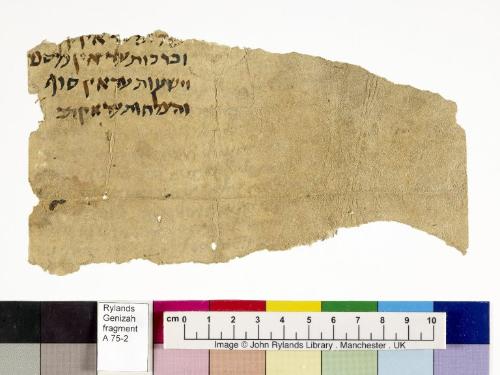 עד אין
וברכות עד אין
וישעות עד אין סוף
והצלחות עד אין קץ
Rylands
Genizah
fragment
A 75-2
cm 0 1 2 3 4 5 6 7 8 9 10
Image © John Rylands Library . Manchester . UK